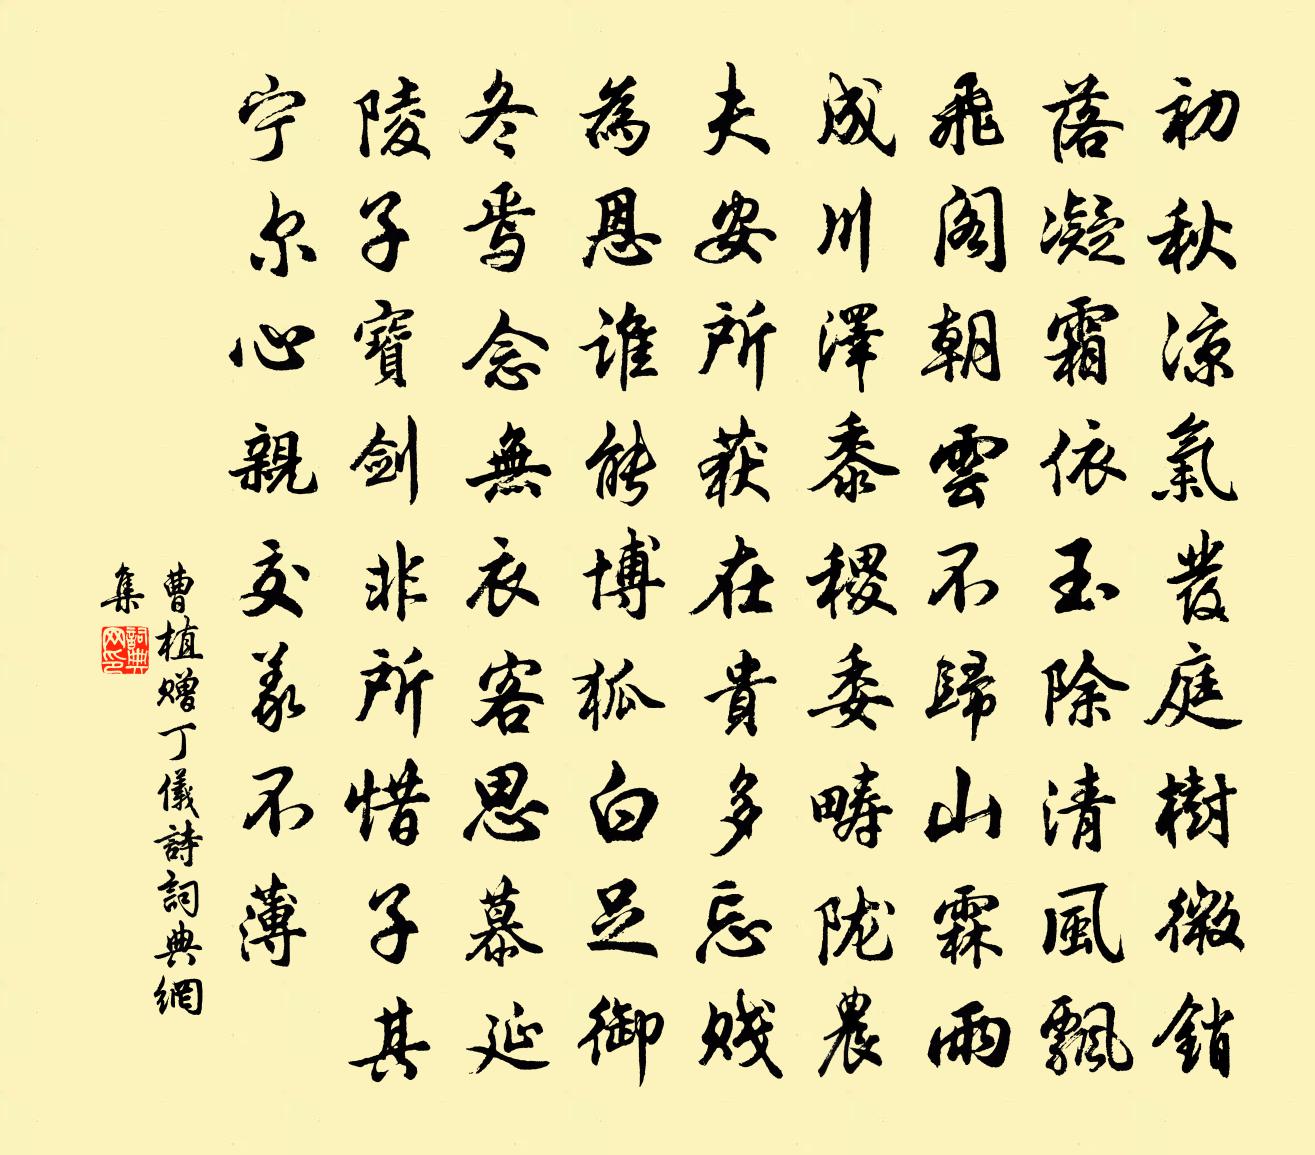 初秋涼氣發庭樹微銷
落凝霜依玉除清風飄
飛閣朝雲不歸山霖雨
成川澤黍稷委疇陇農
夫安所获在貴多忘贱
為恩誰能博狐白足御
冬焉念無衣客思慕延
陵子寶劍非所惜子其
宁尔心親交義不薄
曹植赠丁儀詩詞典網
集
詞典网印